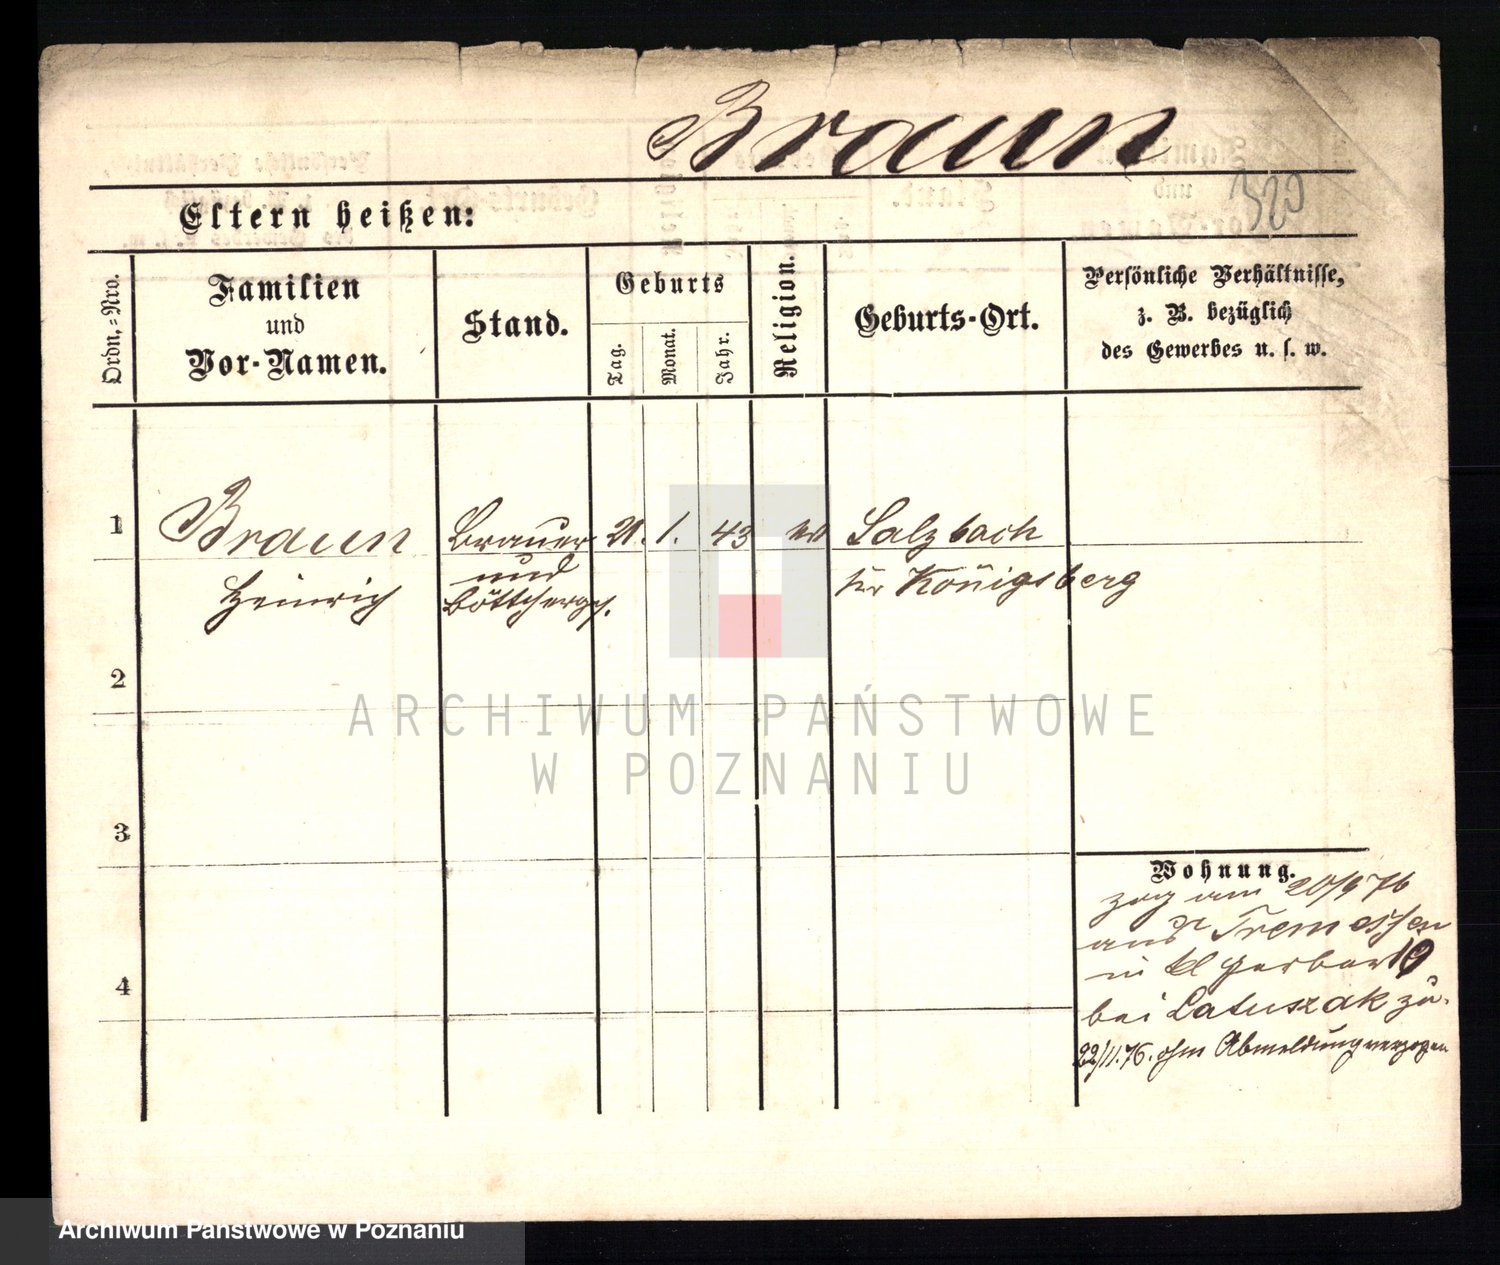 Braun
320
Eltern heißen:
Ordn.=Nro.
Familien
und
Vor-Namen.
Stand.
Geburts
Tag.
Monat.
Jahr.
Religion.
Geburts-Ort.
Persönliche Verhältnisse,
z. B. bezüglich
des Gewerbes u. s. w.
1
Braun
Heinrich
Brauer
und
Böttcherges.
21. 1. 43
Salzbach
Königsberg
2
3
4
Wohnung.
zog am 20/9 76
aus Tremessen
in kl Gerber 10
bei Latuszak zu.
22/11.76. ohne Abmeldung verzogen
ARCHIWUM PAŃSTWOWE
W POZNANIU
Archiwum Państwowe w Poznaniu